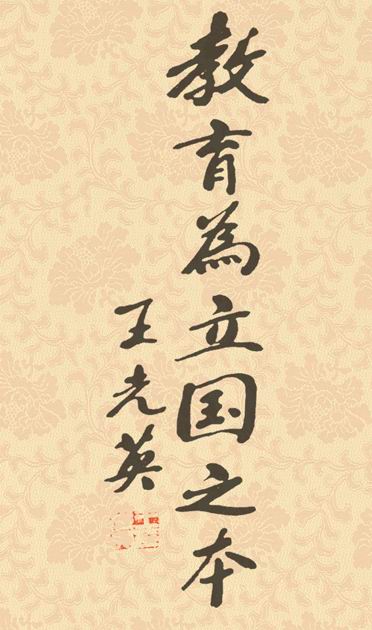 教育為立国之本
王光英